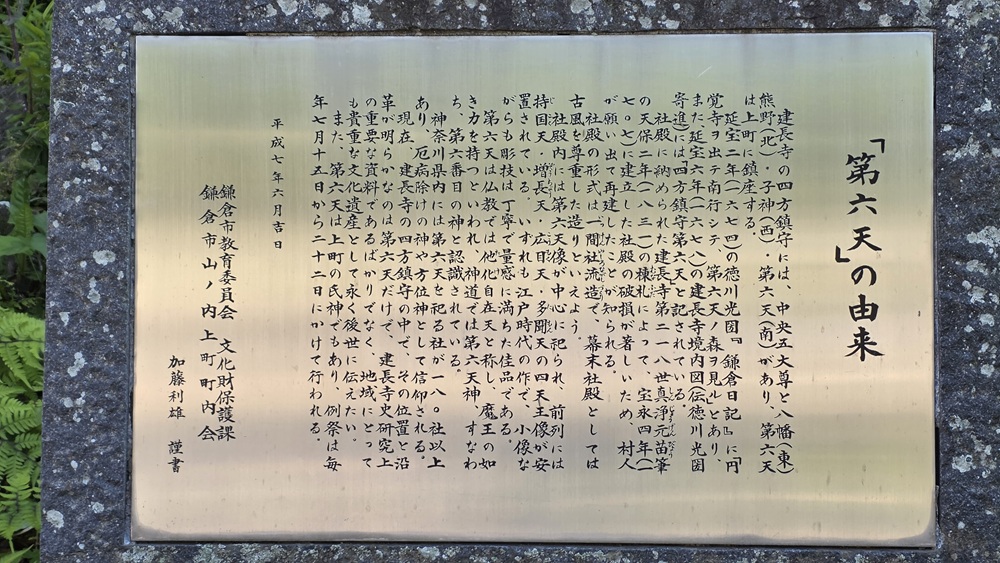 「第六天」の由来
建長寺の四方鎮守には、中央五大尊と八幡(東)
熊野(北)・子神(西)・第六天(南)があり、第六天
は上町に鎮座する。
延宝二年(一六七四)の徳川光圀『鎌倉日記』に「円
覚寺ヲ出テ南行シテ、第六天ノ森ヲ見ル」とあり、
また延宝六年(一六七八)の建長寺境内図(伝徳川光圀
寄進)には四方鎮守第六天と記されている。
社殿に納められた建長寺第二一八世真浄元苗筆
の天保二年(一八三一)の棟札によって、宝永四年(一
七〇七)に建立した社殿の破損が著しいため、村人
が願い出て再建したことが知られる。
社殿の形式は一間社流造で、幕末社殿としては
古風を尊重した造りといえよう。
社殿内には第六天像が中心に祀られ、前列には
持国天・増長天・広目天・多聞天の四天王像が安
置されている。いずれも江戸時代の作で、小像な
がらも彫技は丁寧で量感に満ちた佳品である。
第六天は仏教では他化自在天と称し、魔王の如
き力を持つといわれ、神道では第六天神、すなわ
ち、第六番目の神と認識されている。
神奈川県内には第六天を祀る社が一八〇社以上
あり、厄病除けの神や方位神として信仰される。
現在、建長寺の四方鎮守の中で、その位置と沿
革が明らかなのは第六天だけで、建長寺史研究上
の重要な資料であるばかりでなく、地域にとって
も貴重な文化遺産として永く後世に伝えたい。
また、第六天は上町の氏神でもあり、例祭は毎
年七月十五日から二十二日にかけて行われる。
平成七年六月吉日
鎌倉市教育委員会 文化財保護課
鎌倉市山ノ内上町町内会
加藤利雄 謹書